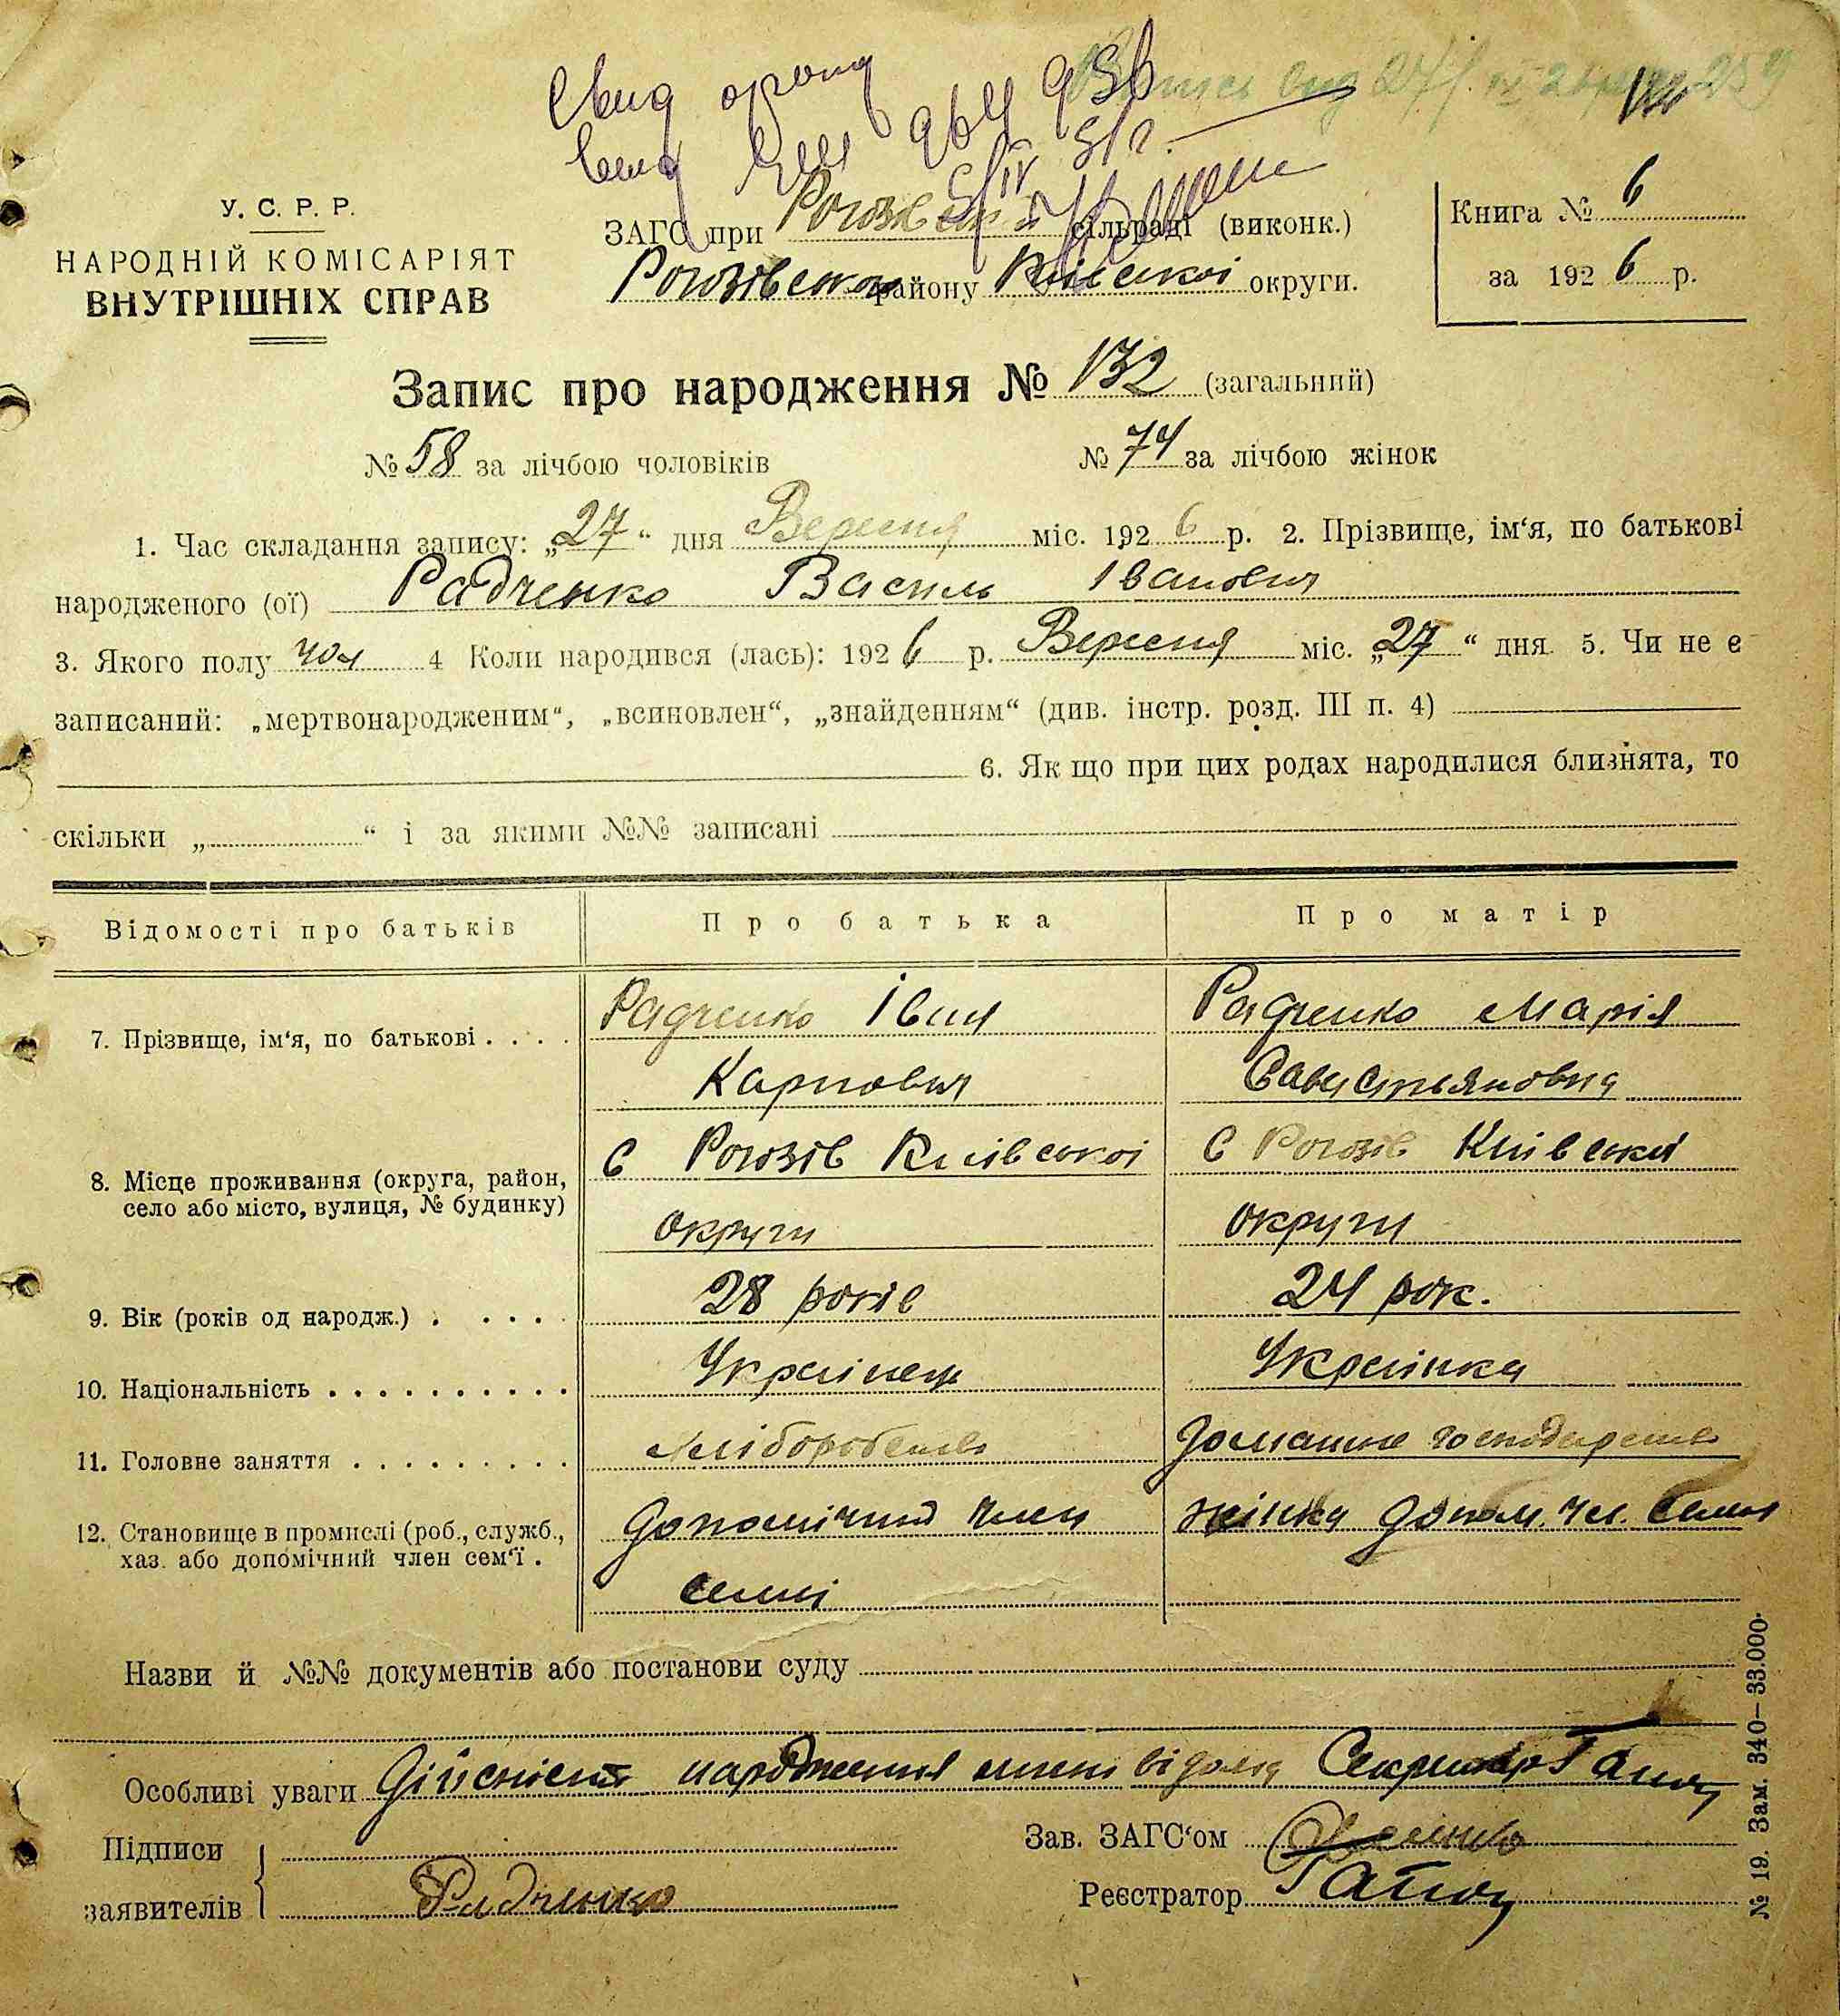 У. С. Р. Р.
НАРОДНІЙ КОМІСАРІЯТ
ВНУТРІШНІХ СПРАВ
ЗАГС при сільраді (виконк.)
Рогозівського району Київської округи.
Книга № 6
за 1926 р.
Запис про народження № 132 (загальний)
№ 58 за лічбою чоловіків № 74 за лічбою жінок
1. Час складання запису: „27“ дня Вересня міс. 1926 р. 2. Прізвище, ім‘я, по батькові
народженого (ої) Радченко Василь Іванович
3. Якого полу чол 4 Коли народився (лась): 1926 р. Вересня міс. „27“ дня. 5. Чи не є
записаний: „мертвонародженим“, „всиновлен“, „знайденням“ (див. інстр. розд. III п. 4)
6. Як що при цих родах народилися близнята, то
скільки „ “ і за якими №№ записані
Відомості про батьків Про батька Про матір
7. Прізвище, ім‘я, по батькові . . . . Радченко Іван Радченко Марія
Карпович Савастьяновна
8. Місце проживання (округа, район, с Рогозів Київської с Рогозів Київської
село або місто, вулиця, № будинку) округи округи
9. Вік (років од народж.) . . . . . 28 років 24 рок.
10. Національність . . . . . . . . . . Українець Українка
11. Головне заняття . . . . . . . . . Хліборобство домашне господарство
12. Становище в промислі (роб., служб., допомічний член жінка допом. чл. семьі
хаз. або допомічний член сем‘ї . семьі
Назви й №№ документів або постанови суду
Особливі уваги Дійсність народження мені відома Секретар Гапон
Підписи
заявителів Радченко
Зав. ЗАГС‘ом
Реєстратор Гапон
№ 19. Зам. 340—33.000.